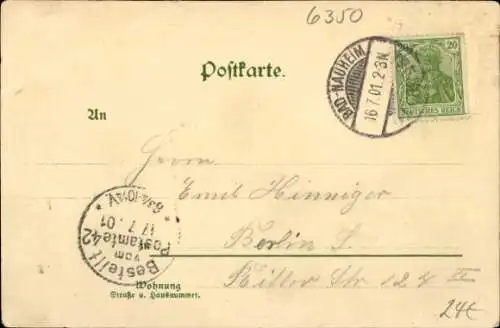 6350
Postkarte.
BAD-NAUHEIM
16.7.01.2-3N.
20
DEUTSCHES REICH
An
Herrn
Emil Henniger
Berlin S.
Ritter Str 127 II
Bestellt
vom
Postamte 42
17.7.01
Wohnung
Straße u. Hausnummer.
24€